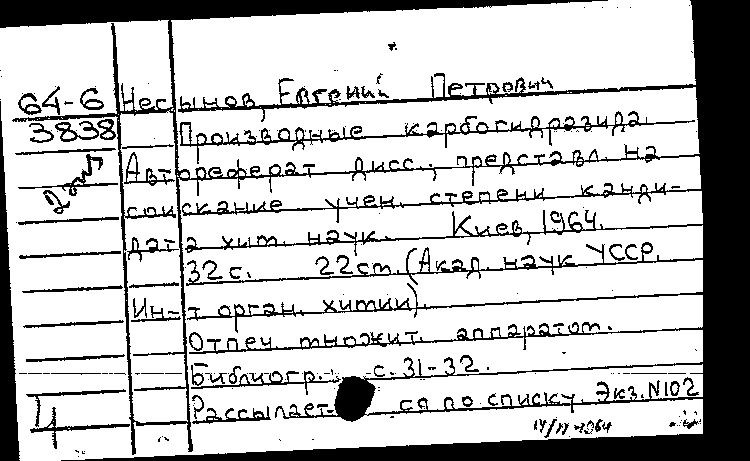 64-6 Несынов, Евгений Петрович
3838 Производные карбогидразида.
Автореферат дисс., представл. на
соискание учен. степени канди-
дата хим. наук. Киев, 1964.
32 с. 22 см. (Акад. наук УССР.
Ин-т орган. химии).
Отпеч. множит. аппаратом.
Библиогр.: с. 31-32.
Рассылается по списку. Экз. N102